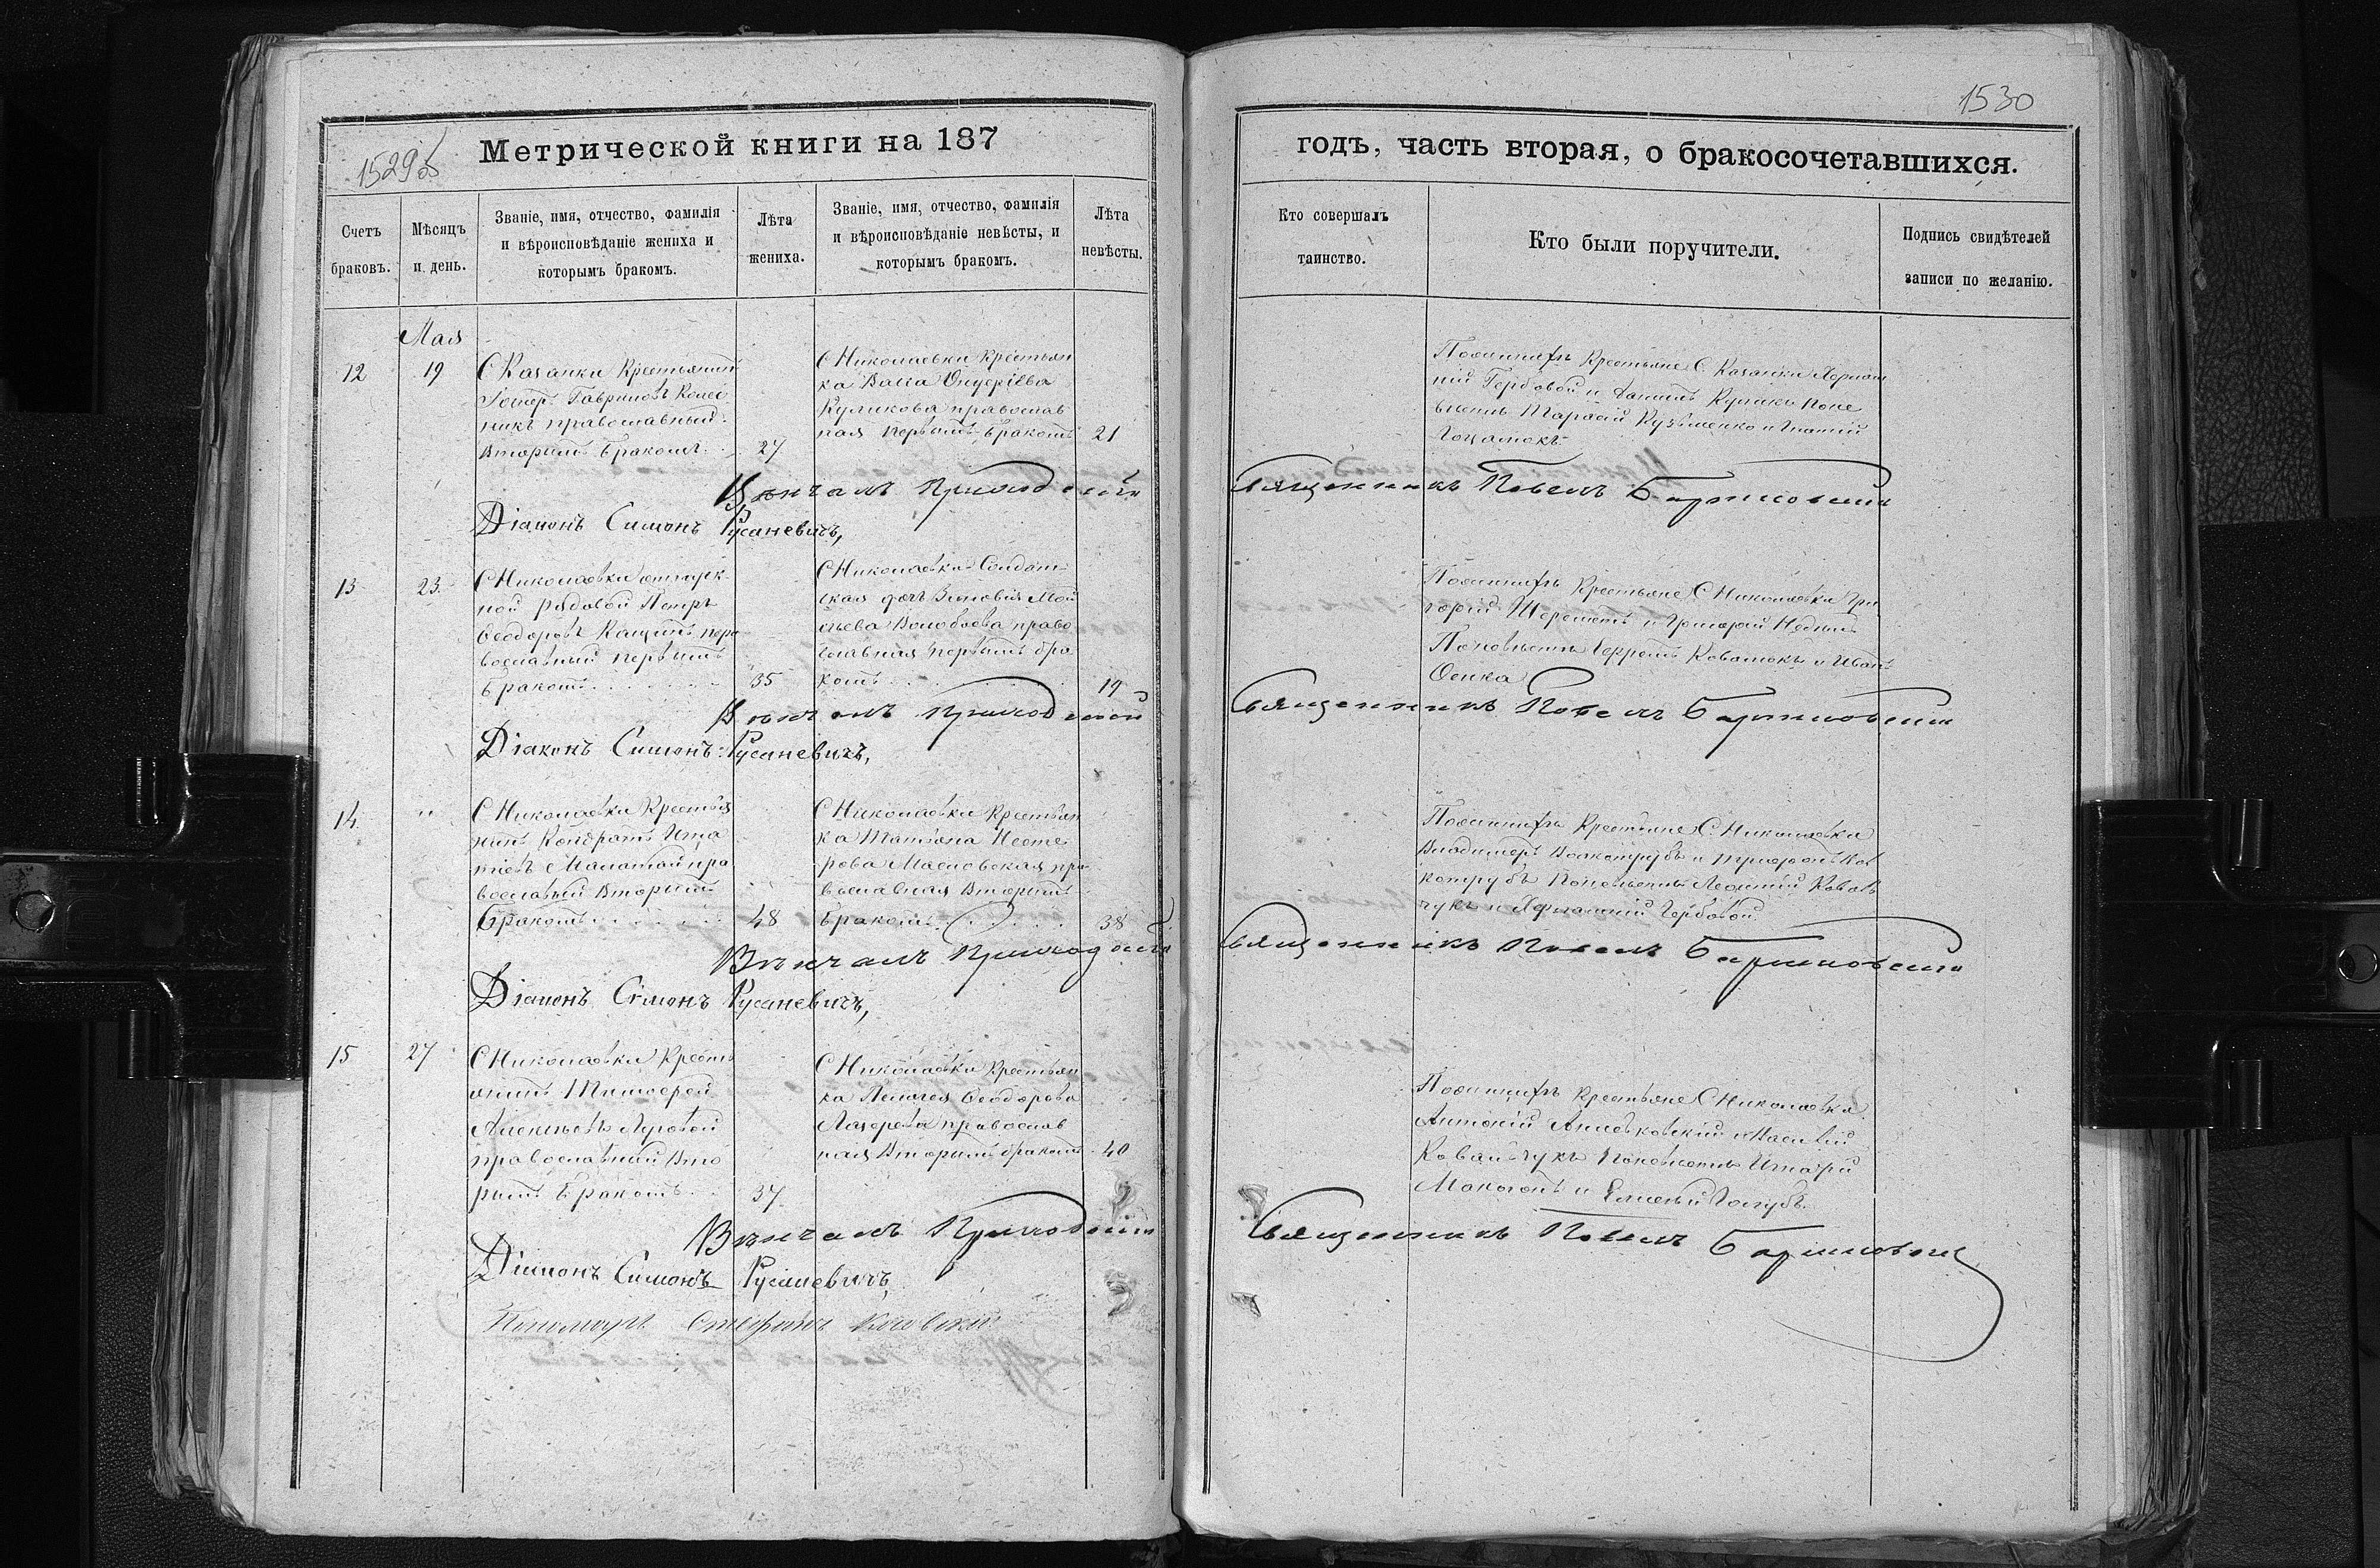 1529об
Метрической книги на 187
Счетъ браковъ.
Мѣсяцъ и день.
Званіе, имя, отчество, фамилія
и вѣроисповѣданіе жениха и
которымъ бракомъ.
Лѣта
жениха.
Званіе, имя, отчество, фамилія
и вѣроисповѣданіе невѣсты, и
которымъ бракомъ.
Лѣта
невѣсты.
Мая
12
19
С Казанки Крестьянинъ
Петръ Гавриловъ
никъ православный
Вторымъ бракомъ
27
С Николаевки Крестьян
ка
Куликова православ
ная первымъ бракомъ
21
Вѣнчалъ Приходскій
Діаконъ Симонъ Русаневичъ,
13
23
С Николаевки отпуск
ной рядовой Петръ
Ѳеодоровъ Кащинъ пра
вославный первымъ
бракомъ
35
С Николаевки Солдат
ская дочь Зиновія Мои
сѣева Волобоева право
славная первымъ бра
комъ
19
Вѣнчалъ Приходскій
Діаконъ Симонъ Русаневичъ,
14
"
С Николаевки Крестья
нинъ Кондратъ Игна
тіевъ Малатай пра
вославный Вторымъ
бракомъ
48
С Николаевки Крестьян
ка Татіана Несте
рова Масловская пра
вославная Вторымъ
бракомъ
38
Вѣнчалъ Приходскій
Діаконъ Симонъ Русаневичъ,
15
27
С Николаевки Кресть
янинъ Тимоѳей
Алексѣевъ Луговой
православный Вто
рымъ бракомъ
37
С Николаевки Крестьян
ка Пелагея Ѳеодорова
Лазарева православ
ная Вторымъ бракомъ
40
Вѣнчалъ Приходскій
Діаконъ Симонъ Русаневичъ,
Пономарь Стефанъ
1530
годъ, часть вторая, о бракосочетавшихся.
Кто совершалъ
таинство.
Кто были поручители.
Подпись свидѣтелей
записи по желанію.
Крестьяне С. Казанки
ній Гербовой и Даніилъ Куликъ Поне
вѣстѣ Тарасій Кузьменко и Игнатій
Священникъ Павелъ
Крестьяне С Николаевки Гри
горій Шереметъ и Григорій
Поневѣстѣ и Иванъ
Осика
Священникъ Павелъ
Крестьяне С. Николаевки
Владимеръ Волкотрубъ и Трифонъ Вол
котрубъ Поневѣстѣ Леонтій Коваль
чукъ и Гербовой
Священникъ Павелъ
Крестьяне С Николаевки
Антоній и Василій
Ковальчукъ Поневѣстѣ
Макогонъ и Голубъ.
Священникъ Павелъ